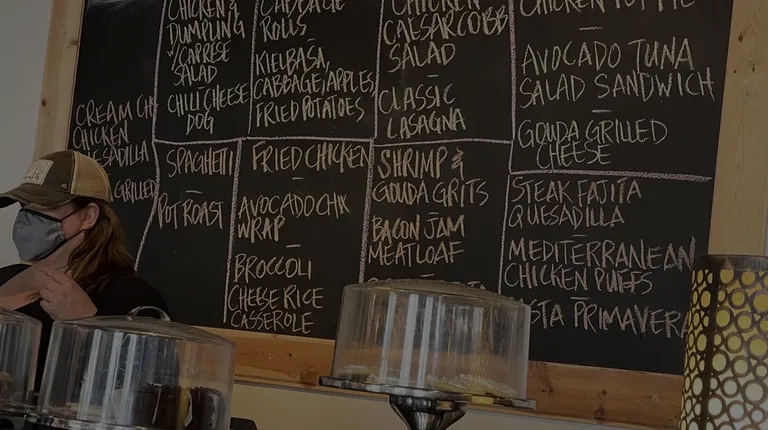 CREAM CH
CHICKEN
QUESADILLA
GRILLED
CHICKEN &
DUMPLING
W/ CAPRESE
SALAD
CHILI CHEESE
DOG
CABBAGE
ROLLS
KIELBASA,
CABBAGE, APPLES,
FRIED POTATOES
CHICKEN
CAESAR COBB
SALAD
CLASSIC
LASAGNA
CHICKEN
AVOCADO TUNA
SALAD SANDWICH
GOUDA GRILLED
CHEESE
SPAGHETTI
POT ROAST
FRIED CHICKEN
AVOCADO CHX
WRAP
BROCCOLI
CHEESE RICE
CASSEROLE
SHRIMP &
GOUDA GRITS
BACON JAM
MEATLOAF
STEAK FAJITA
QUESADILLA
MEDITERRANEAN
CHICKEN PUFFS
PASTA PRIMAVERA